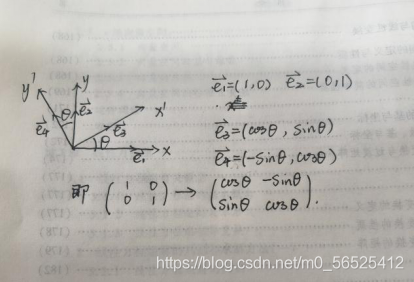 y' y x' x
θ θ
e₄ e₂ e₃ e₁
e₁=(1,0) e₂=(0,1)
e₃=(cosθ, sinθ)
e₄=(-sinθ, cosθ)
即 (1 0 → (cosθ -sinθ
0 1) sinθ cosθ).
https://blog.csdn.net/m0_56525412